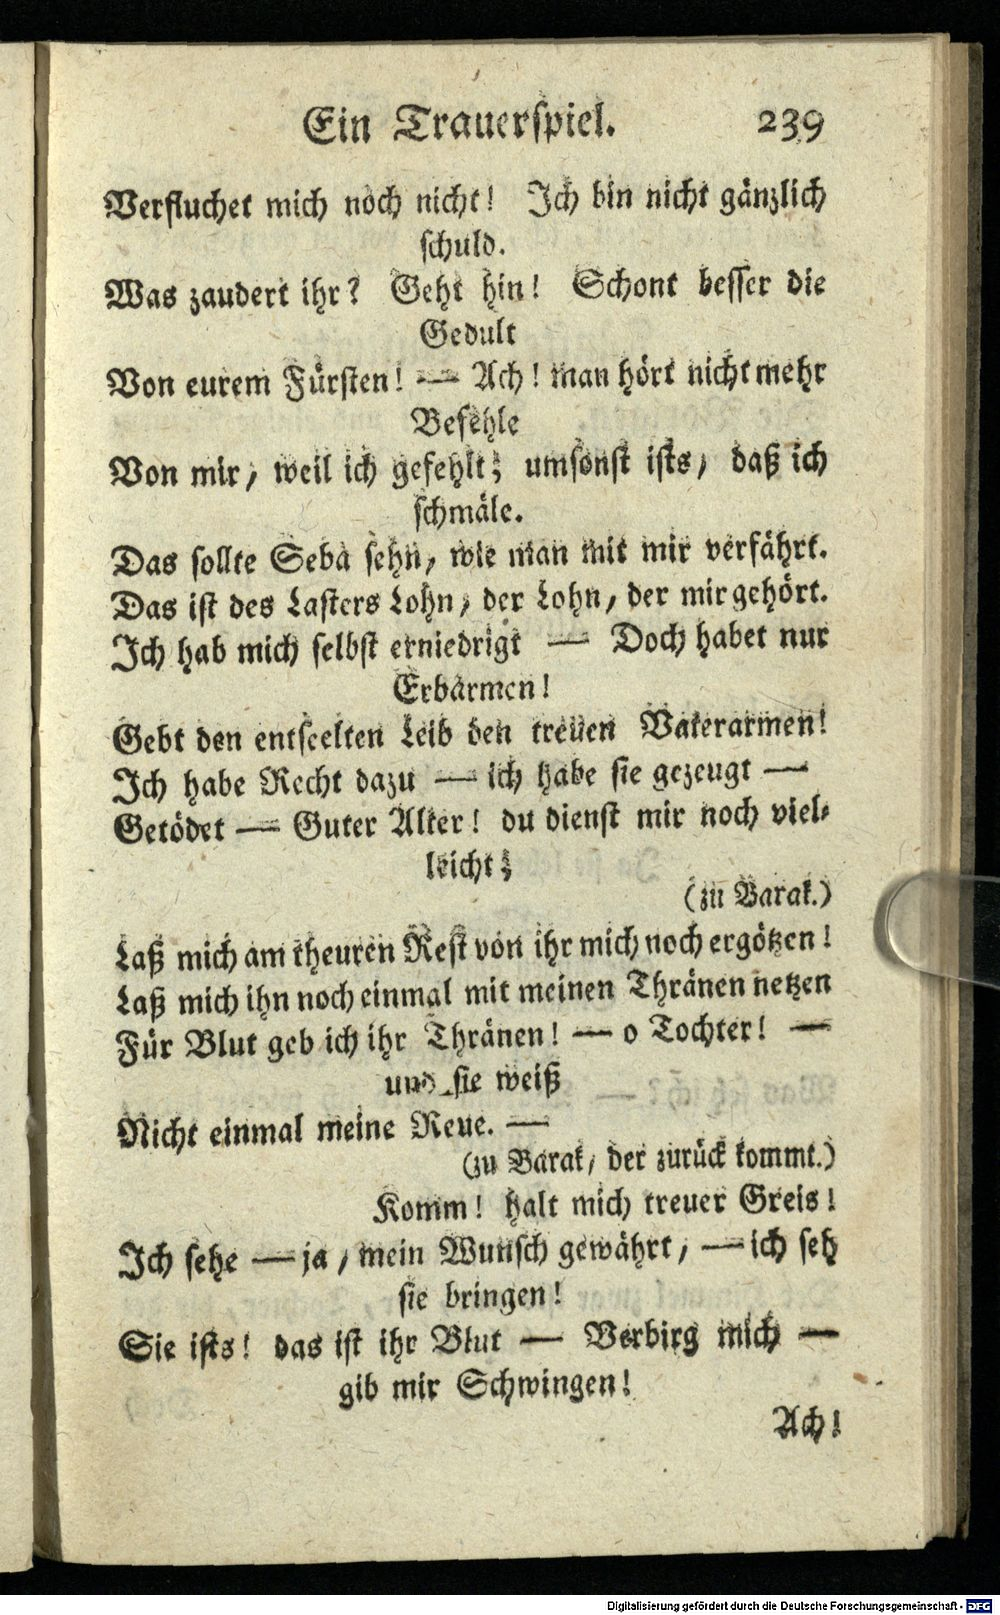 Ein Trauerspiel. 239
Verfluchet mich noch nicht! Ich bin nicht gänzlich
schuld.
Was zaudert ihr? Geht hin! Schont besser die
Gedult
Von eurem Fürsten! — Ach! man hört nicht mehr
Befehle
Von mir, weil ich gefehlt; umsonst ists, daß ich
schmäle.
Das sollte Seba sehn, wie man mit mir verfährt.
Das ist des Lasters Lohn, der Lohn, der mir gehört.
Ich hab mich selbst erniedrigt — Doch habet nur
Erbarmen!
Gebt den entseelten Leib den treuen Vaterarmen!
Ich habe Recht dazu — ich habe sie gezeugt —
Getödet — Guter Alter! du dienst mir noch viel-
leicht;
(zu Barak.)
Laß mich am theuren Rest von ihr mich noch ergötzen!
Laß mich ihn noch einmal mit meinen Thränen netzen
Für Blut geb ich ihr Thränen! — o Tochter! —
und sie weiß
Nicht einmal meine Reue. —
(zu Barak, der zurück kommt.)
Komm! halt mich treuer Greis!
Ich sehe — ja, mein Wunsch gewährt, — ich seh
sie bringen!
Sie ists! das ist ihr Blut — Verbirg mich —
gib mir Schwingen!
Ach!
Digitalisierung gefördert durch die Deutsche Forschungsgemeinschaft - DFG